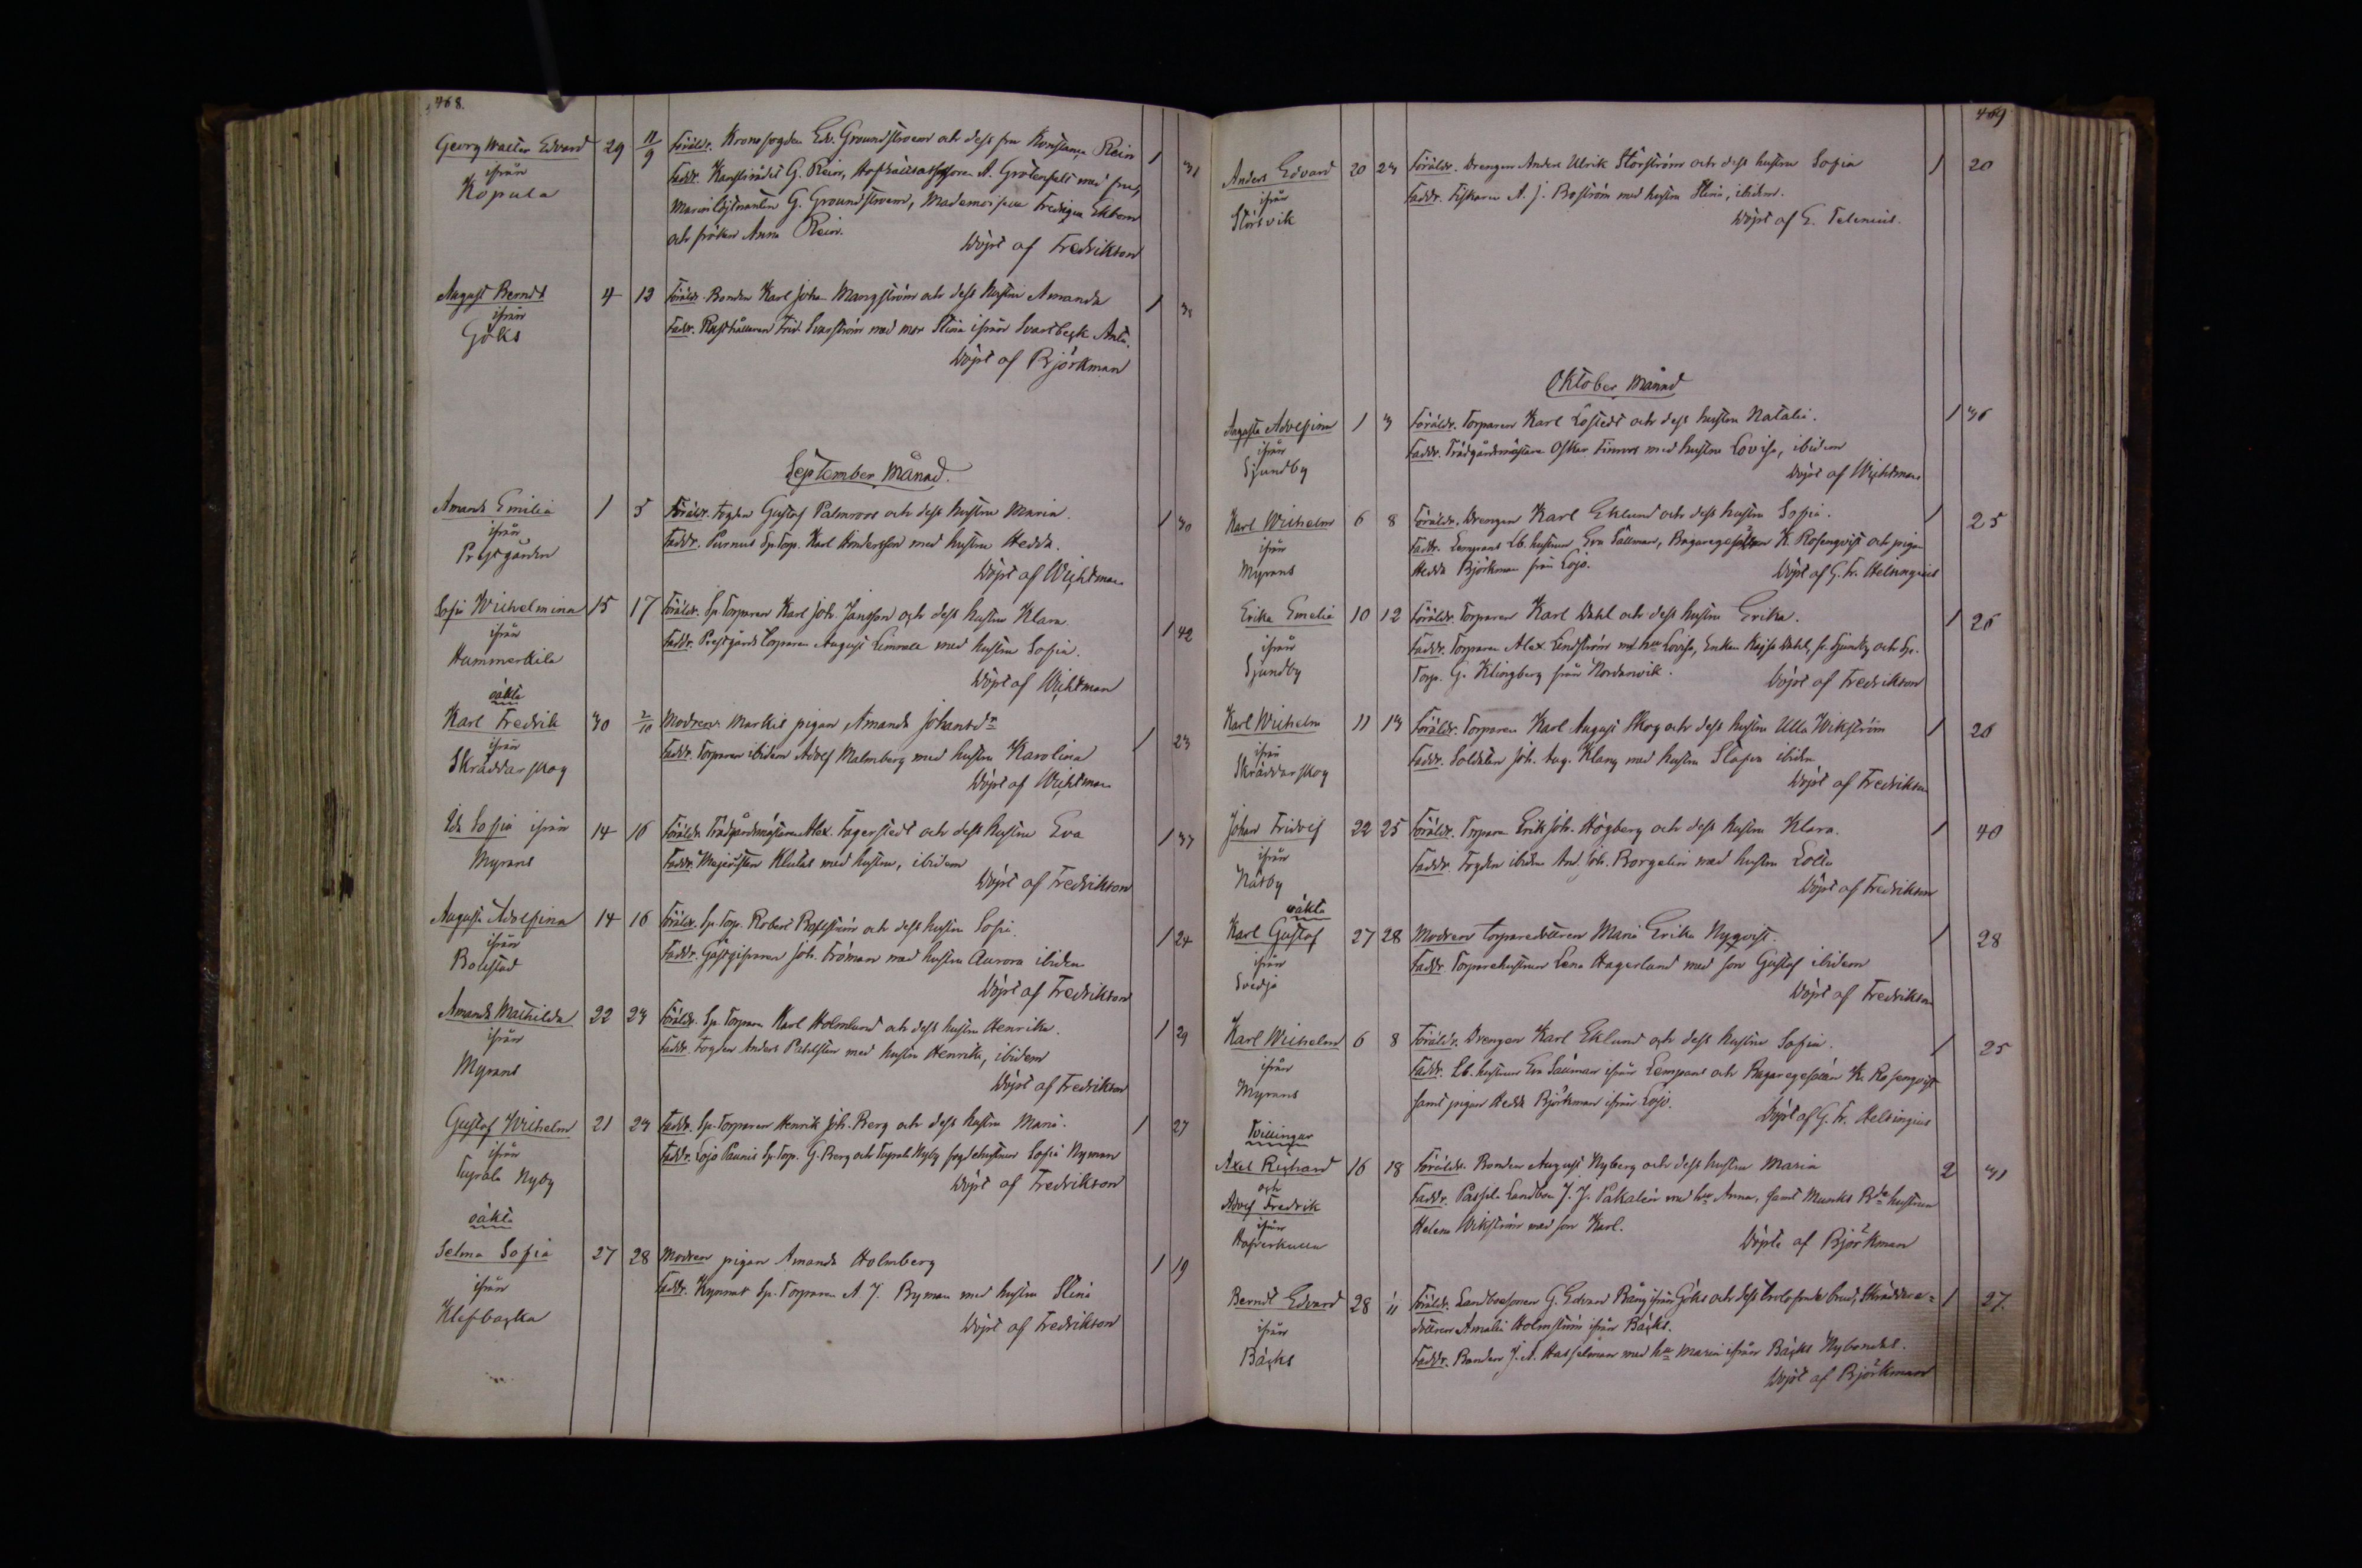 468.
Georg Walter Edvard 29 11/9 Föräldr. Kronofogden Edv. Groundstroem och dess fru Konstance Rein 1 31
ifrån Faddr. Kanslirådet G. Rein, A. Grotenfelt med fru,
Kopula G. Groundstroem, Mademoiselle Fredrique Ekbom
och fröken Anna Rein.
Döpt af Fredrikson
August Berndt 4 12 Föräldr. Bonden Karl Johan Mangström och dess hustru Amanda 1
ifrån Faddr. Rusthållaren Frid. Svanström med mor Stina ifrån Svartbeck
Göks Döpt af Björkman
September Månad.
Amanda Emilia 1 5 Föräldr. Fogden Gustaf Palmroos och dess hustru Maria. 1 30
ifrån Faddr. Purnus Sp. Torp. Karl Andersson med hustru Hedda.
Prestgården Döpt af Wichtman
Sofia Wilhelmina 15 17 Föräldr. Sp. Torparen Karl Joh. Jansson och dess hustru Klara. 1 42
ifrån Faddr. Prestgårds Torparen August med hustru Sofia.
Hummerkila Döpt af Wichtman
oäkta
Karl Fredrik 30 2/10 Modren. Markis pigan Amanda Johansdr 1 23
ifrån Faddr. Torparen ibidem Adolf Malmberg med hustru Karolina
Skräddarskog Döpt af Wichtman
Ida Sofia ifrån 14 16 Föräldr. Trädgårdsmästaren Alex. Fagerstedt och dess hustru Eva 1 37
Myrans Faddr. Majoristen Klutas med hustru, ibidem
Döpt af Fredrikson
Augusta Adolfina 14 16 Föräldr. Sp. Torp. Robert och dess hustru Sofia. 1 24
ifrån Faddr. Gästgifvaren Joh. Fröman med hustru Aurora ibidem
Bolstad Döpt af Fredrikson
Amanda Mathilda 22 23 Föräldr. Sp. Torparen Karl Holmlund och dess hustru Henrika. 1 29
ifrån Faddr. Fogden Anders Pahlsten med hustru Henrika, ibidem
Myrans Döpt af Fredrikson
Gustaf Wilhelm 21 23 Faddr. Sp. Torparen Henrik Joh. Berg och dess hustru Maria. 1 27
ifrån Faddr. Lojo Paunis Sp. Torp. G. Berg och Tuprala Nyby fogdehustrun Sofia Nyman
Tuprala Nyby Döpt af Fredrikson
oäkta
Selma Sofia 27 28 Modren pigan Amanda Holmberg 1 19
ifrån Faddr. Kynnar Sp. Torparen A. J. Byman med hustru Stina
Klefbacka Döpt af Fredrikson
469
Anders Edvard 20 23 Föräldr. Drengen Anders Ulrik Storström och dess hustru Sofia 1 20
ifrån Faddr. Fiskaren A. J. Boström med hustru Stina, ibidem.
Störsvik Döpt af E. Telenius.
Oktober Månad
Augusta Adolfina 1 3 Föräldr. Torparen Karl Löfstedt och dess hustru Natalia. 1 36
ifrån Faddr. Trädgårdsmästaren Oskar Finnros med hustru Lovisa, ibidem
Sjundby Döpt af Wichtman
Karl Wilhelm 6 8 Föräldr. Drengen Karl Eklund och dess hustru Sofia. 1 25
ifrån Faddr. Lempans Lb. hustrun Eva Sällman, Bagaregesällen K. Rosenqvist och pigan
Myrans Hedda Björkman från Lojo. Döpt af G. Fr. Helsingius
Erika Emelia 10 12 Föräldr. Torparen Karl Dahl och dess hustru Erika. 1 26
ifrån Faddr. Torparen Alex. Lindström med hu Lovisa, Enkan Kajsa Dahl, fr. Sjundby och Sp.
Sjundby Torp. G. Klingberg från Nordanvik. Döpt af Fredrikson
Karl Wilhelm 11 13 Föräldr. Torparen Karl August Skog och dess hustru Ulla Wikström 1 26
ifrån Faddr. Soldaten Joh. Aug. Klang med hustru Stafva ibidem
Skräddarskog Döpt af Fredrikson
Johan Fridolf 22 25 Föräldr. Torparen Erik Joh. Högberg och dess hustru Klara. 1 40
ifrån Faddr. Fogden ibidem And. Joh. Borgelin med hustru Lotta
Näsby Döpt af Fredrikson
oäkta
Karl Gustaf 27 28 Modren torparedottren Maria Erika Nyqvist. 1 28
ifrån Faddr. Torparehustrun Lena Hagerlund med son Gustaf ibidem
Svedja Döpt af Fredrikson
Karl Wilhelm 6 8 Föräldr. Drengen Karl Eklund och dess hustru Sofia. 1 25
ifrån Faddr. Lb. hustrun Eva Sällman ifrån Lempans och Bagaregesällen K. Rosenqvist
Myrans samt pigan Hedda Björkman ifrån Lojo.
Döpt af G. Fr. Helsingius
Tvillingar
Axel Richard 16 18 Föräldr. Bonden August Nyberg och dess hustru Maria 2 31
och Faddr. Passila Landbon J. J. Pakalén med hu Anna, samt Munks Bde hustrun
Adolf Fredrik Helena Wikström med son Karl.
ifrån Döpte af Björkman
Hafverkulla
Berndt Edvard 28 1/11 Föräldr. Landbosonen G. Edvard Bäng ifrån Göks och dess trolofvade brud, Skräddare= 1 27.
ifrån dottren Amalia Holmström ifrån Bäcks.
Bäcks Faddr. Bonden J. A. Hasselman med hu Maria ifrån Bäcks Nybondas.
Döpt af Björkman